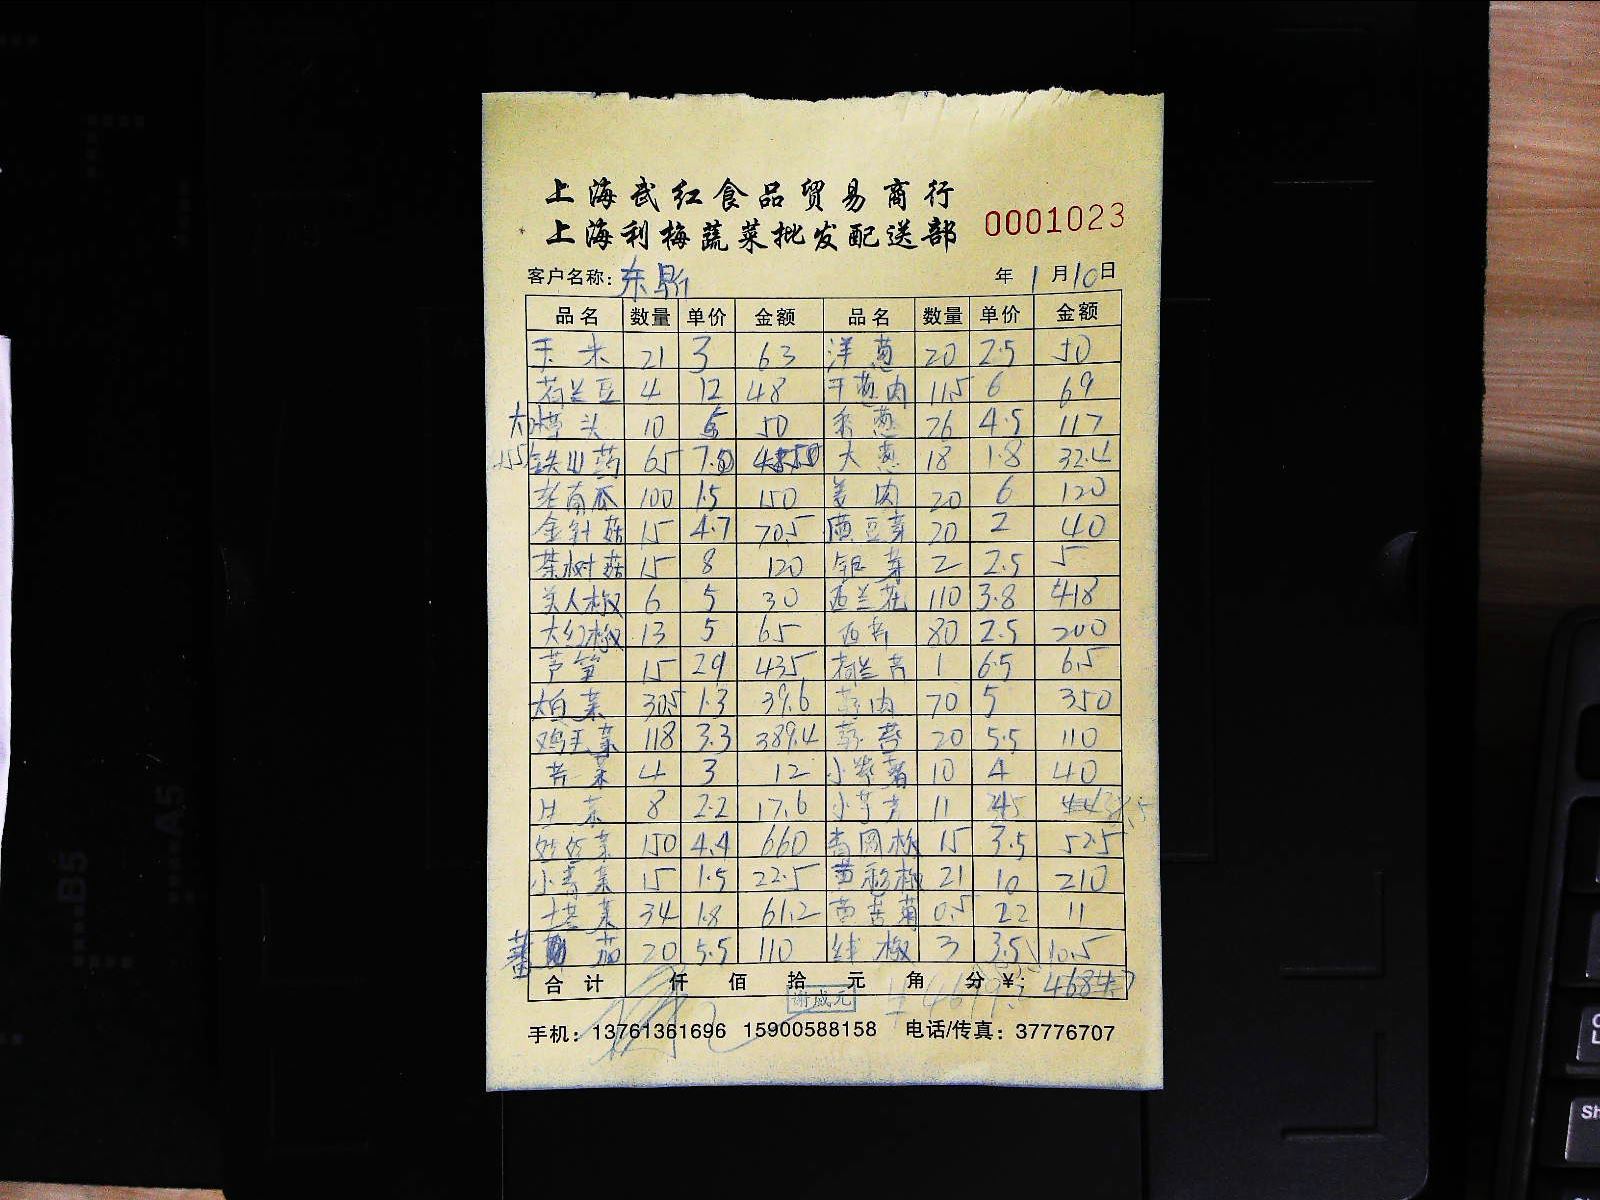 上海武红食品贸易商行
上海利梅蔬菜批发配送部 0001023
客户名称: 东 年 1 月 10 日
品名 数量 单价 金额 品名 数量 单价 金额
玉米 21 3 63 洋葱 20 2.5 50
荷兰豆 4 12 48 干葱肉 11.5 6 69
头 10 5 50 香葱 26 4.5 117
铁山药 65 大葱 18 1.8 32.4
老南瓜 100 1.5 150 姜肉 20 6 120
金针菇 15 4.7 70.5 黄豆芽 20 2 40
茶树菇 15 8 120 银芽 2 2.5 5
美人椒 6 5 30 西兰花 110 3.8 418
大红椒 13 5 65 西芹 80 2.5 200
芦笋 15 29 435 荷兰芹 1 6.5 6.5
大白菜 30.5 1.3 39.6 蒜肉 70 5 350
鸡毛菜 118 3.3 389.4 蒜苔 20 5.5 110
苦菜 4 3 12 小紫薯 10 4 40
生菜 8 2.2 17.6 小芋艿 11
菜 150 4.4 660 青圆椒 15 3.5 52.5
小青菜 15 1.5 22.5 黄彩椒 21 10 210
菜 34 1.8 61.2 黄苦菊 0.5 22 11
蕃茄 20 5.5 110 椒 3 3.5 10.5
合计 仟 佰 拾 元 角 分 ¥:
谢成元
手机: 13761361696 15900588158 电话/传真: 37776707